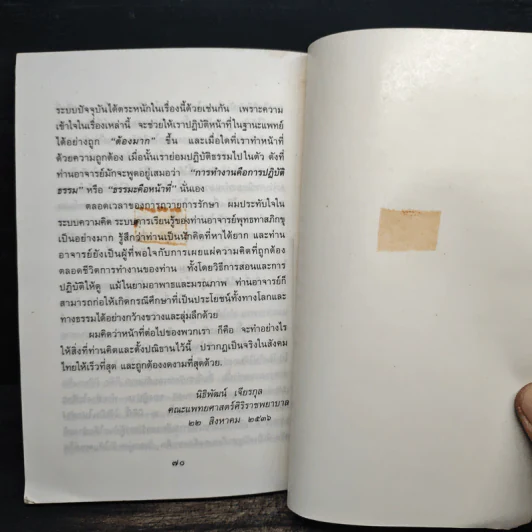 ระบบปัจจุบันได้ตระหนักในเรื่องนี้ด้วยเช่นกัน เพราะความ
เข้าใจในเรื่องเหล่านี้ จะช่วยให้เราปฏิบัติหน้าที่ในฐานะแพทย์
ได้อย่างถูก "ต้องมาก" ขึ้น และเมื่อใดที่เราทำหน้าที่
ด้วยความถูกต้อง เมื่อนั้นเราย่อมปฏิบัติธรรมไปในตัว ดังที่
ท่านอาจารย์มักจะพูดอยู่เสมอว่า "การทำงานคือการปฏิบัติ
ธรรม" หรือ "ธรรมะคือหน้าที่" นั่นเอง
ตลอดเวลาของการถวายการรักษา ผมประทับใจใน
ระบบความคิด ระบบการเรียนรู้ของท่านอาจารย์พุทธทาสภิกขุ
เป็นอย่างมาก รู้สึกว่าท่านเป็นนักคิดที่หาได้ยาก และท่าน
อาจารย์ยังเป็นผู้ที่พอใจกับการเผยแผ่ความคิดที่ถูกต้อง
ตลอดชีวิตการทำงานของท่าน ทั้งโดยวิธีการสอนและการ
ปฏิบัติให้ดู แม้ในยามอาพาธและมรณภาพ ท่านอาจารย์ก็
สามารถก่อให้เกิดกรณีศึกษาที่เป็นประโยชน์ทั้งทางโลกและ
ทางธรรมได้อย่างกว้างขวางและลุ่มลึกด้วย
ผมคิดว่าหน้าที่ต่อไปของพวกเรา ก็คือ จะทำอย่างไร
ให้สิ่งที่ท่านคิดและตั้งปณิธานไว้นี้ ปรากฏเป็นจริงในสังคม
ไทยให้เร็วที่สุด และถูกต้องงดงามที่สุดด้วย.
นิธิพัฒน์ เจียรกุล
คณะแพทยศาสตร์ศิริราชพยาบาล
๒๒ สิงหาคม ๒๕๓๖
๗๐